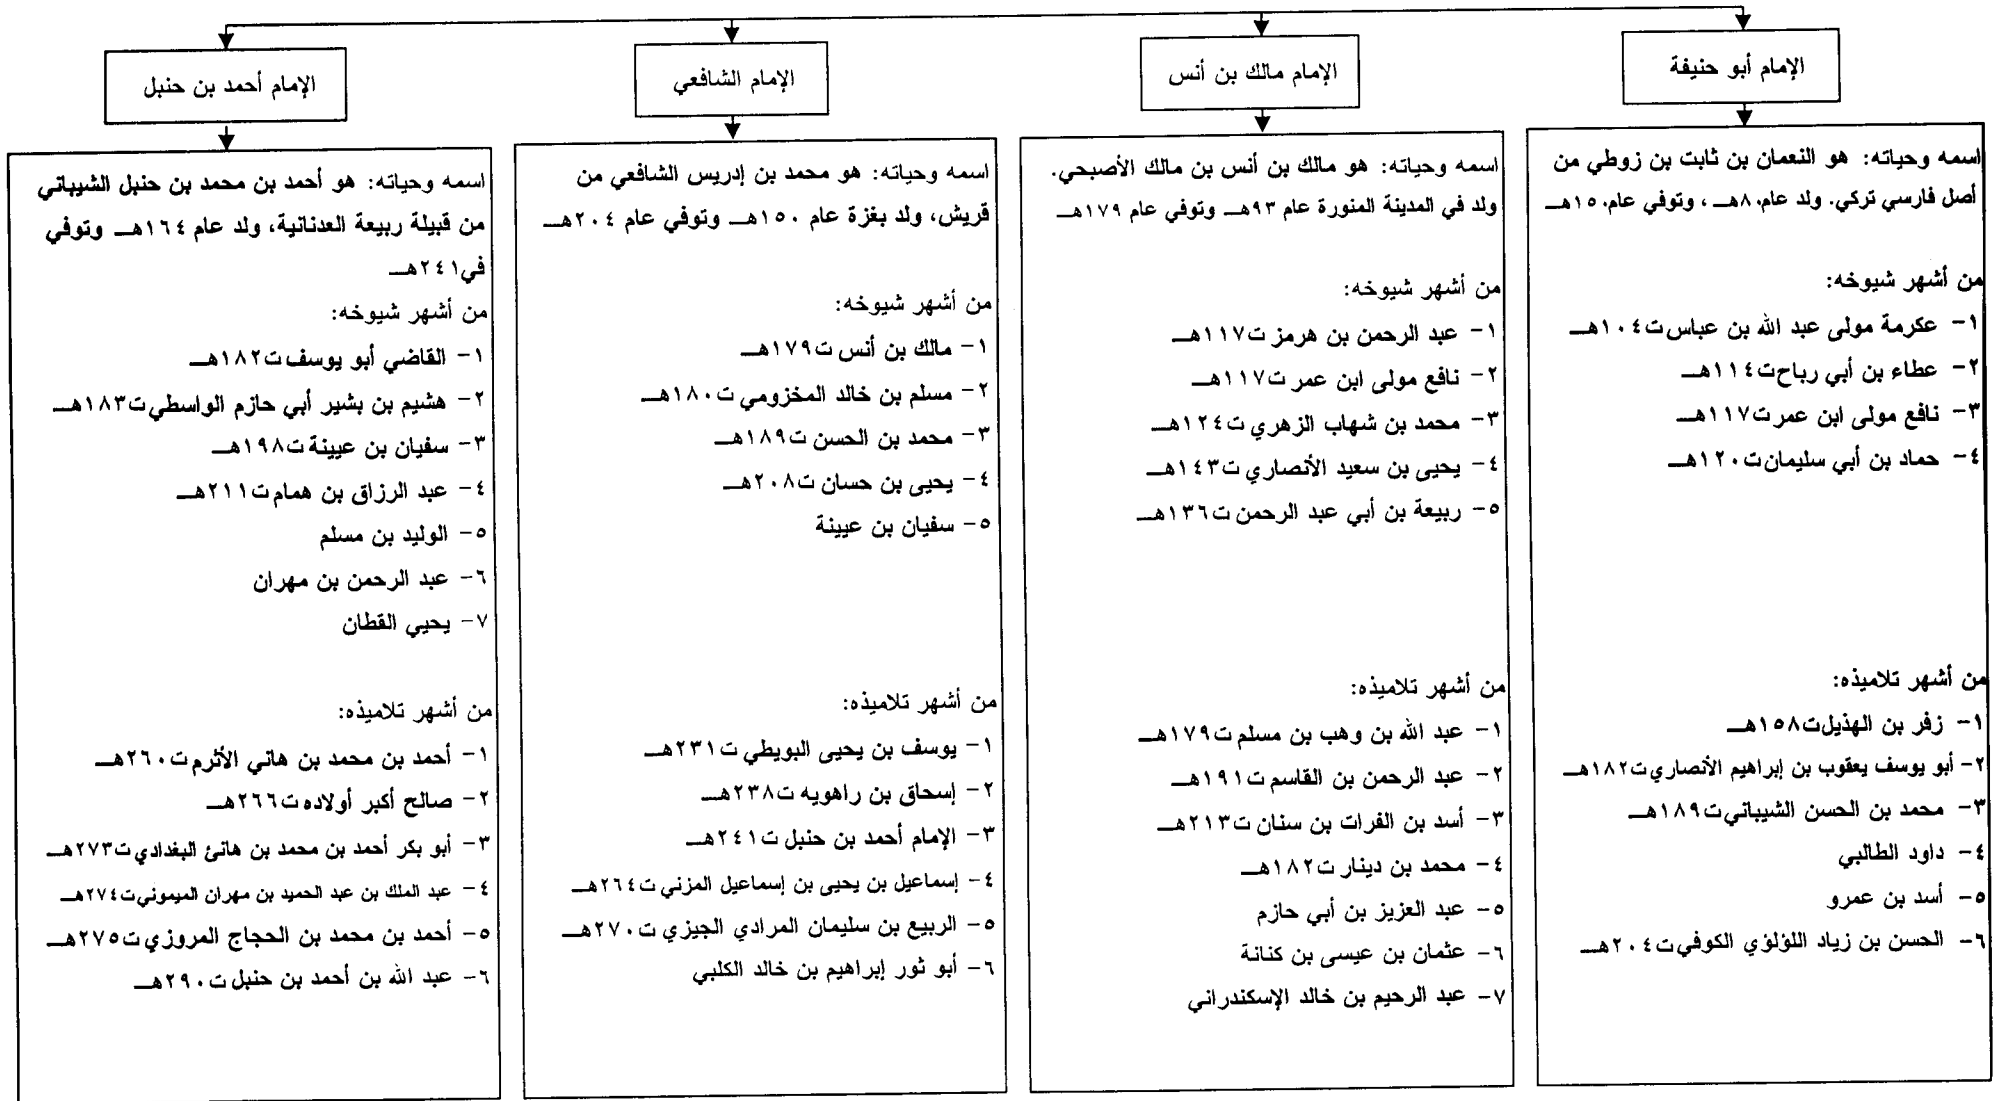 الإمام أبو حنيفة
اسمه وحياته: هو النعمان بن ثابت بن زوطي من
أصل فارسي تركي. ولد عام ٨٠هــ ، وتوفي عام ١٥٠هــ
من أشهر شيوخه:
١- عكرمة مولى عبد الله بن عباس ت١٠٤هــ
٢- عطاء بن أبي رباح ت١١٤هــ
٣- نافع مولى ابن عمر ت١١٧هــ
٤- حماد بن أبي سليمان ت١٢٠هــ
من أشهر تلاميذه:
١- زفر بن الهذيل ت١٥٨هــ
٢- أبو يوسف يعقوب بن إبراهيم الأنصاري ت١٨٢هــ
٣- محمد بن الحسن الشيباني ت١٨٩هــ
٤- داود الطالبي
٥- أسد بن عمرو
٦- الحسن بن زياد اللؤلؤي الكوفي ت٢٠٤هــ
الإمام مالك بن أنس
اسمه وحياته: هو مالك بن أنس بن مالك الأصبحي.
ولد في المدينة المنورة عام ٩٣هــ وتوفي عام ١٧٩هــ
من أشهر شيوخه:
١- عبد الرحمن بن هرمز ت١١٧هــ
٢- نافع مولى ابن عمر ت١١٧هــ
٣- محمد بن شهاب الزهري ت١٢٤هــ
٤- يحيى بن سعيد الأنصاري ت١٤٣هــ
٥- ربيعة بن أبي عبد الرحمن ت١٣٦هــ
من أشهر تلاميذه:
١- عبد الله بن وهب بن مسلم ت١٧٩هــ
٢- عبد الرحمن بن القاسم ت١٩١هــ
٣- أسد بن الفرات بن سنان ت٢١٣هــ
٤- محمد بن دينار ت١٨٢هــ
٥- عبد العزيز بن أبي حازم
٦- عثمان بن عيسى بن كنانة
٧- عبد الرحيم بن خالد الإسكندراني
الإمام الشافعي
اسمه وحياته: هو محمد بن إدريس الشافعي من
قريش، ولد بغزة عام ١٥٠هــ وتوفي عام ٢٠٤هــ
من أشهر شيوخه:
١- مالك بن أنس ت١٧٩هــ
٢- مسلم بن خالد المخزومي ت١٨٠هــ
٣- محمد بن الحسن ت١٨٩هــ
٤- يحيى بن حسان ت٢٠٨هــ
٥- سفيان بن عيينة
من أشهر تلاميذه:
١- يوسف بن يحيى البويطي ت٢٣١هــ
٢- إسحاق بن راهويه ت٢٣٨هــ
٣- الإمام أحمد بن حنبل ت٢٤١هــ
٤- إسماعيل بن يحيى بن إسماعيل المزني ت٢٦٤هــ
٥- الربيع بن سليمان المرادي الجيزي ت٢٧٠هــ
٦- أبو ثور إبراهيم بن خالد الكلبي
الإمام أحمد بن حنبل
اسمه وحياته: هو أحمد بن محمد بن حنبل الشيباني
من قبيلة ربيعة العدنانية، ولد عام ١٦٤هــ وتوفي
في٢٤١هــ
من أشهر شيوخه:
١- القاضي أبو يوسف ت١٨٢هــ
٢- هشيم بن بشير أبي حازم الواسطي ت١٨٣هــ
٣- سفيان بن عيينة ت١٩٨هــ
٤- عبد الرزاق بن همام ت٢١١هــ
٥- الوليد بن مسلم
٦- عبد الرحمن بن مهران
٧- يحيي القطان
من أشهر تلاميذه:
١- أحمد بن محمد بن هاني الأثرم ت٢٦٠هــ
٢- صالح أكبر أولاده ت٢٦٦هــ
٣- أبو بكر أحمد بن محمد بن هانئ البغدادي ت٢٧٣هــ
٤- عبد الملك بن عبد الحميد بن مهران الميموني ت٢٧٤هــ
٥- أحمد بن محمد بن الحجاج المروزي ت٢٧٥هــ
٦- عبد الله بن أحمد بن حنبل ت٢٩٠هــ